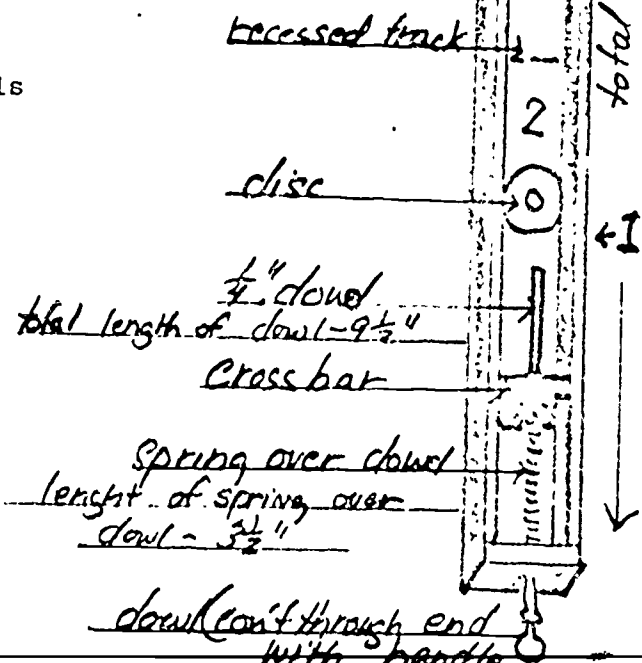 recessed track
total
ls
2
disc
0
1/4" dowl
total length of dowl - 9 1/2"
Cross bar
spring over dowl
lenght of spring over
dowl - 3 1/2"
dowl (con't through end
with handle